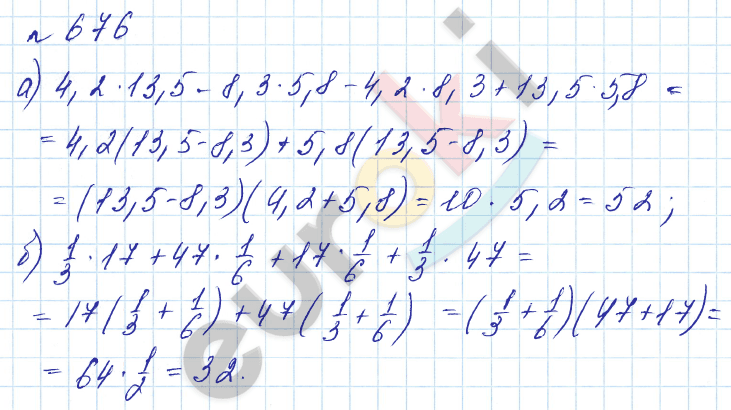 n 676
а) 4,2·13,5 - 8,3·5,8 - 4,2·8,3 + 13,5·5,8 =
= 4,2(13,5-8,3) + 5,8(13,5-8,3) =
= (13,5-8,3)(4,2+5,8) = 10·5,2 = 52;
б) 1/3·17 + 47·1/6 + 17·1/6 + 1/3·47 =
= 17(1/3 + 1/6) + 47(1/3 + 1/6) = (1/3 + 1/6)(47+17) =
= 64·1/2 = 32.
euroki